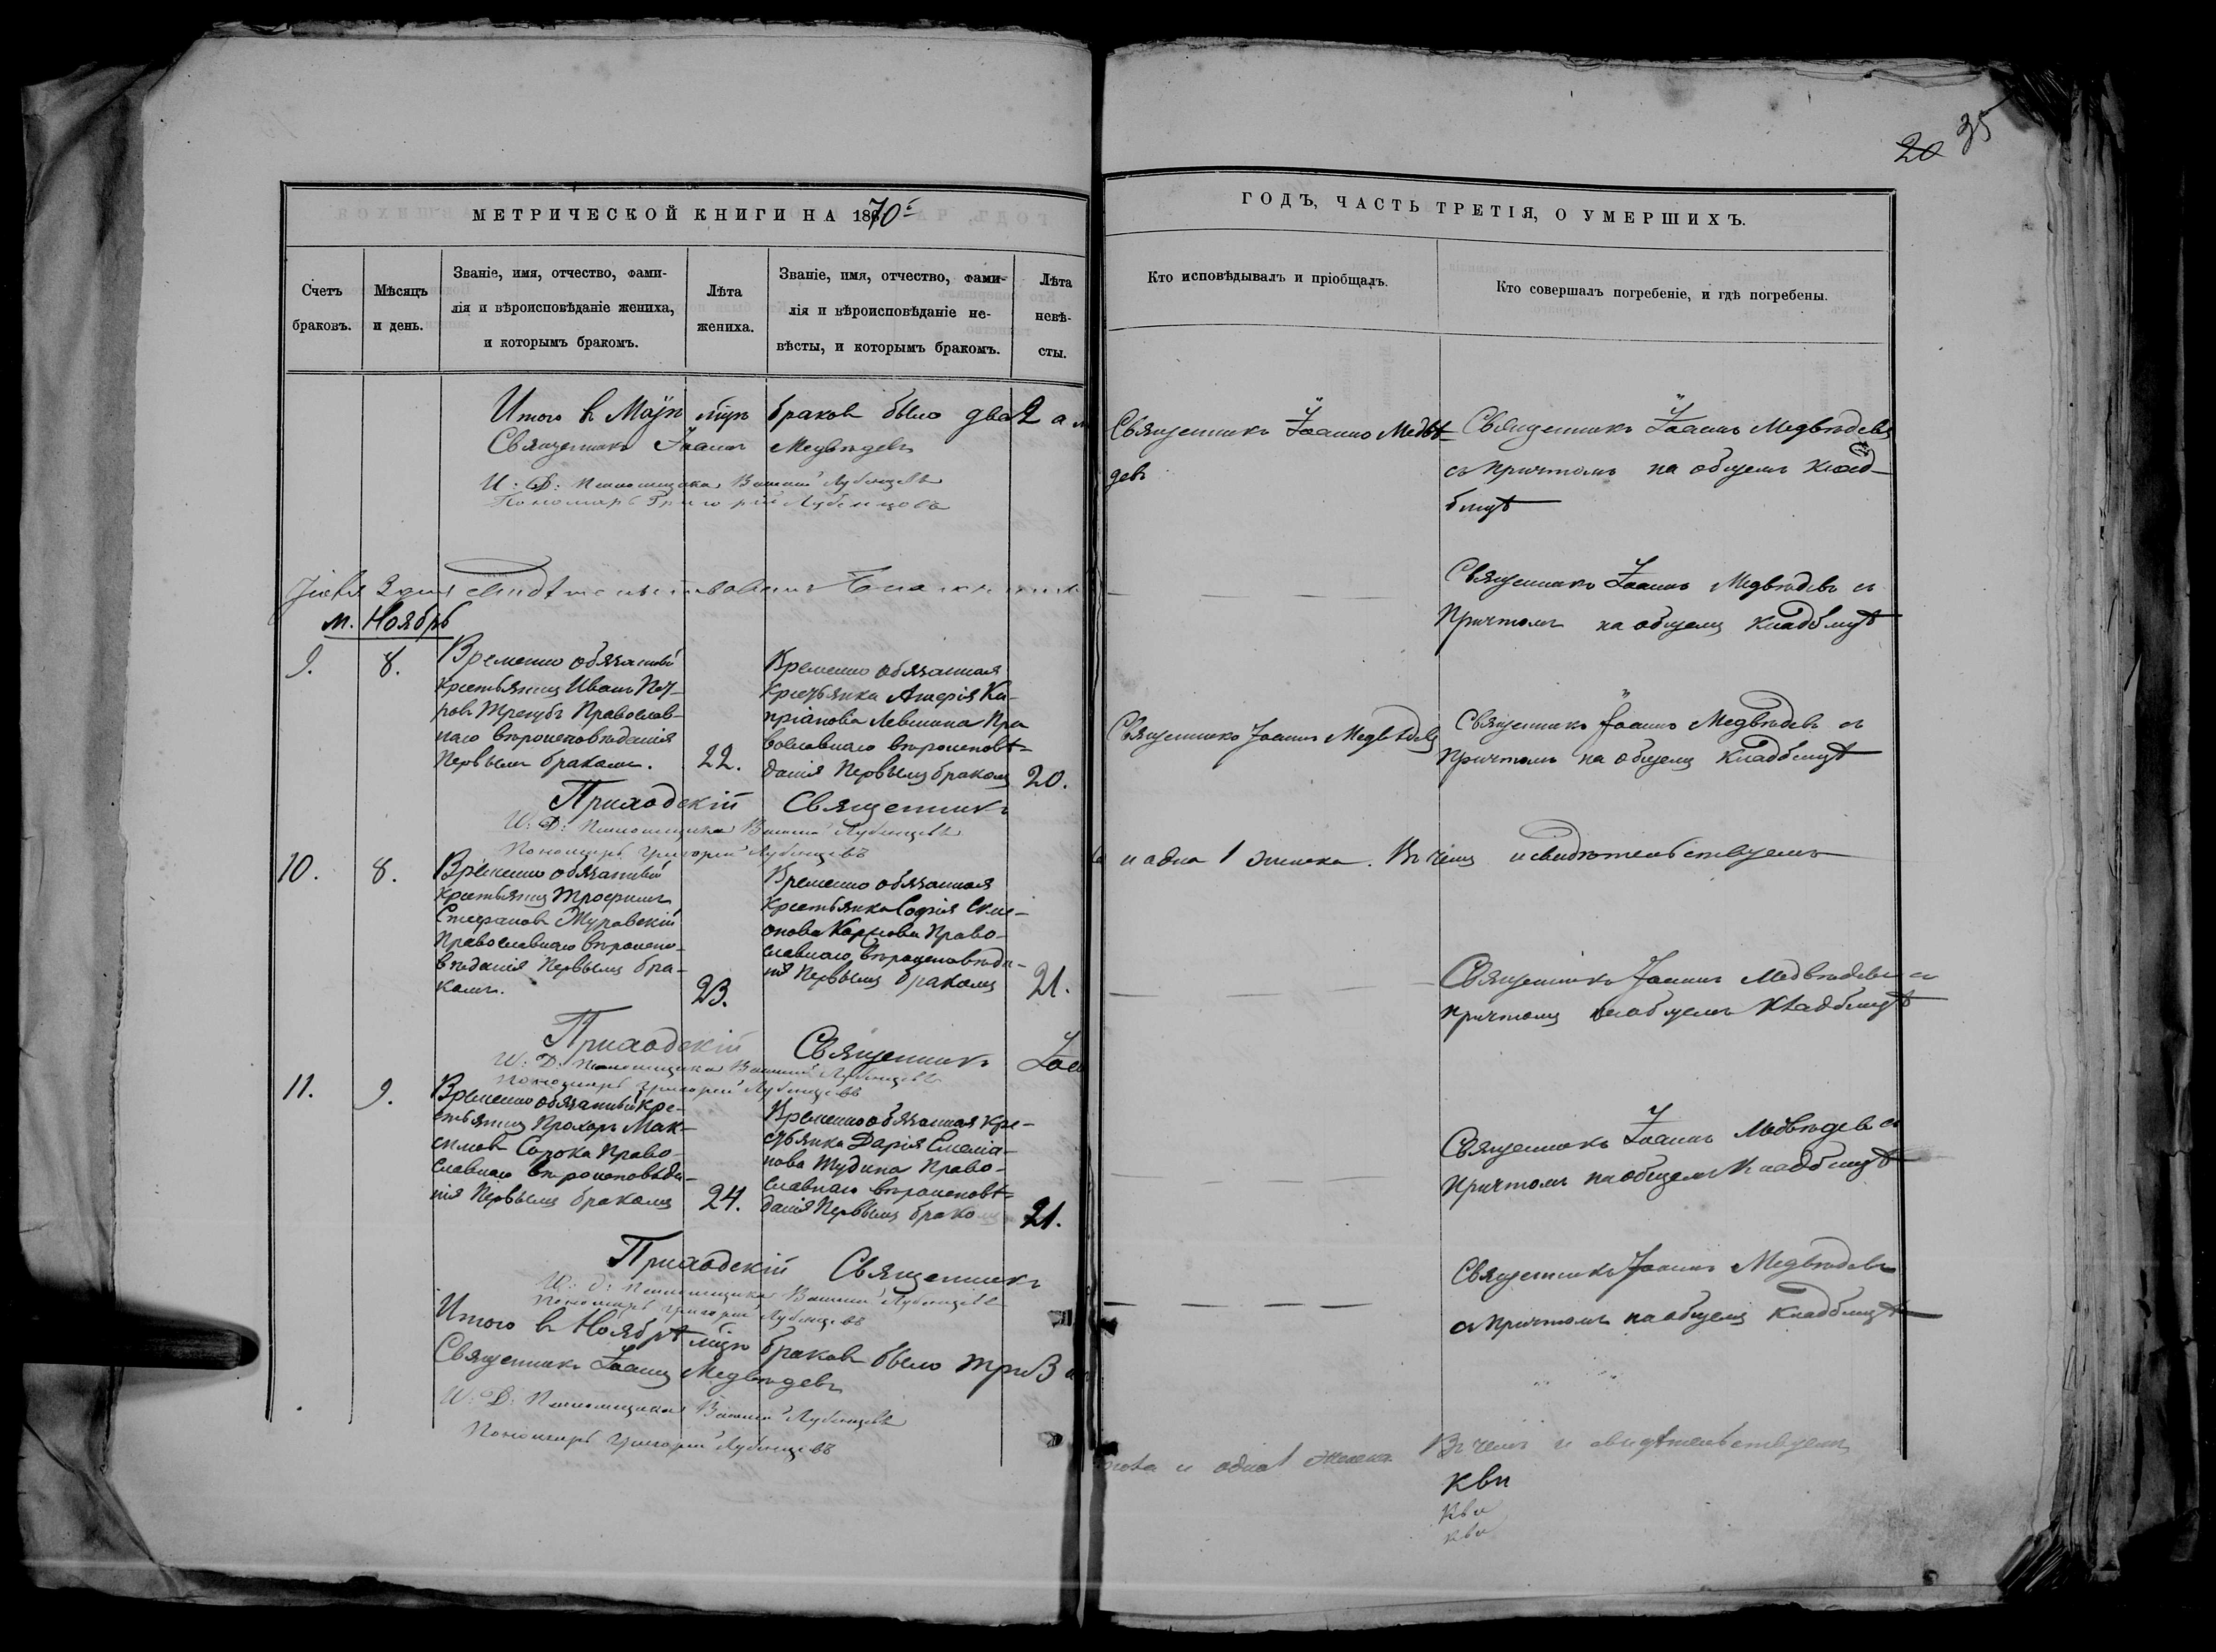 МЕТРИЧЕСКОЙ КНИГИ НА 1870
Счетъ браковъ.
Мѣсяцъ и день.
Званіе, имя, отчество, фами-
лія и вѣроисповѣданіе жениха,
и которымъ бракомъ.
Лѣта
жениха.
Званіе, имя, отчество, фами-
лія и вѣроисповѣданіе не-
вѣсты, и которымъ бракомъ.
Лѣта
невѣ-
сты.
Итого в браков было два 2
Священникъ Іоаннъ Медвѣдевъ
И: Д: Василий Лубенцовъ
Пономарь Григорій Лубенцовъ
м. Ноябрь
9.
8.
Временно обязанный
крестьянинъ Иванъ Пет-
ровъ Трегубъ Православ-
наго вѣроисповѣданія
Первымъ бракомъ.
22.
Временно обязанная
крестьянка Ки-
пріанова Левшина Пра
вославнаго вѣроисповѣ=
данія Первымъ бракомъ
20.
Приходскій Священникъ
И: Д: Василий Лубенцовъ
Пономарь Григорій Лубенцовъ
10.
8.
Временно обязанный
крестьянинъ Трофимъ
Стефановъ Журавскій
Православнаго вѣроиспо-
вѣданія Первымъ бра-
комъ.
23.
Временно обязанная
крестьянка Софія
Право-
славнаго вѣроисповѣда-
нія Первымъ бракомъ
21.
Приходскій Священникъ
И: Д: Василий Лубенцовъ
Пономарь Григорій Лубенцовъ
11.
9.
Временно обязанный кре-
стьянинъ Прохоръ Мак-
симовъ Сорока Право-
славнаго вѣроисповѣда-
нія Первымъ бракомъ
24.
Временно обязанная кре-
стьянка Дарія Емелiа-
нова Право-
славнаго вѣроисповѣ=
данія Первымъ бракомъ
21.
Приходскій Священникъ
И: Д: Василий Лубенцовъ
Пономарь Григорій Лубенцовъ
Итого в Ноябрѣ мцѣ браков было три 3
Священникъ Іоаннъ Медвѣдевъ
И: Д: Василий Лубенцовъ
Пономарь Григорій Лубенцовъ
20 35
ГОДЪ, ЧАСТЬ ТРЕТІЯ, О УМЕРШИХЪ.
Кто исповѣдывалъ и пріобщалъ.
Кто совершалъ погребеніе, и гдѣ погребены.
Священникъ Іоаннъ Медвѣ-
девъ
Священникъ Іоаннъ Медвѣдевъ
съ Причтомъ на общемъ клад-
бищѣ
Священникъ Іоаннъ Медвѣдевъ съ
Причтомъ на общемъ кладбищѣ
Священникъ Іоаннъ Медвѣдевъ
Священникъ Іоаннъ Медвѣдевъ съ
Причтомъ на общемъ Кладбищѣ
и одна 1 женска. Въ чемъ и свидѣтельствуемъ
Священникъ Іоаннъ Медвѣдевъ съ
Причтомъ на общемъ Кладбищѣ
Священникъ Іоаннъ Медвѣдевъ съ
Причтомъ на общемъ Кладбищѣ
Священникъ Іоаннъ Медвѣдевъ
съ Причтомъ на общемъ Кладбищѣ
и одна 1 женска Въ чемъ и свидѣтельствуемъ